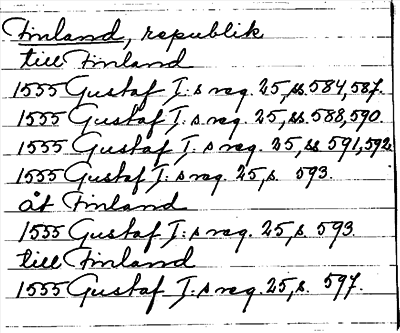 Finland, republik
till Finland
1555 Gustaf I:s reg. 25, ss. 584, 587.
1555 Gustaf I:s reg. 25, ss. 588, 590.
1555 Gustaf I:s reg. 25, ss 591, 592
1555 Gustaf I:s reg. 25, s. 593.
åt Finland
1555 Gustaf I:s reg. 25, s. 593.
till Finland
1555 Gustaf I:s reg. 25, s. 597.